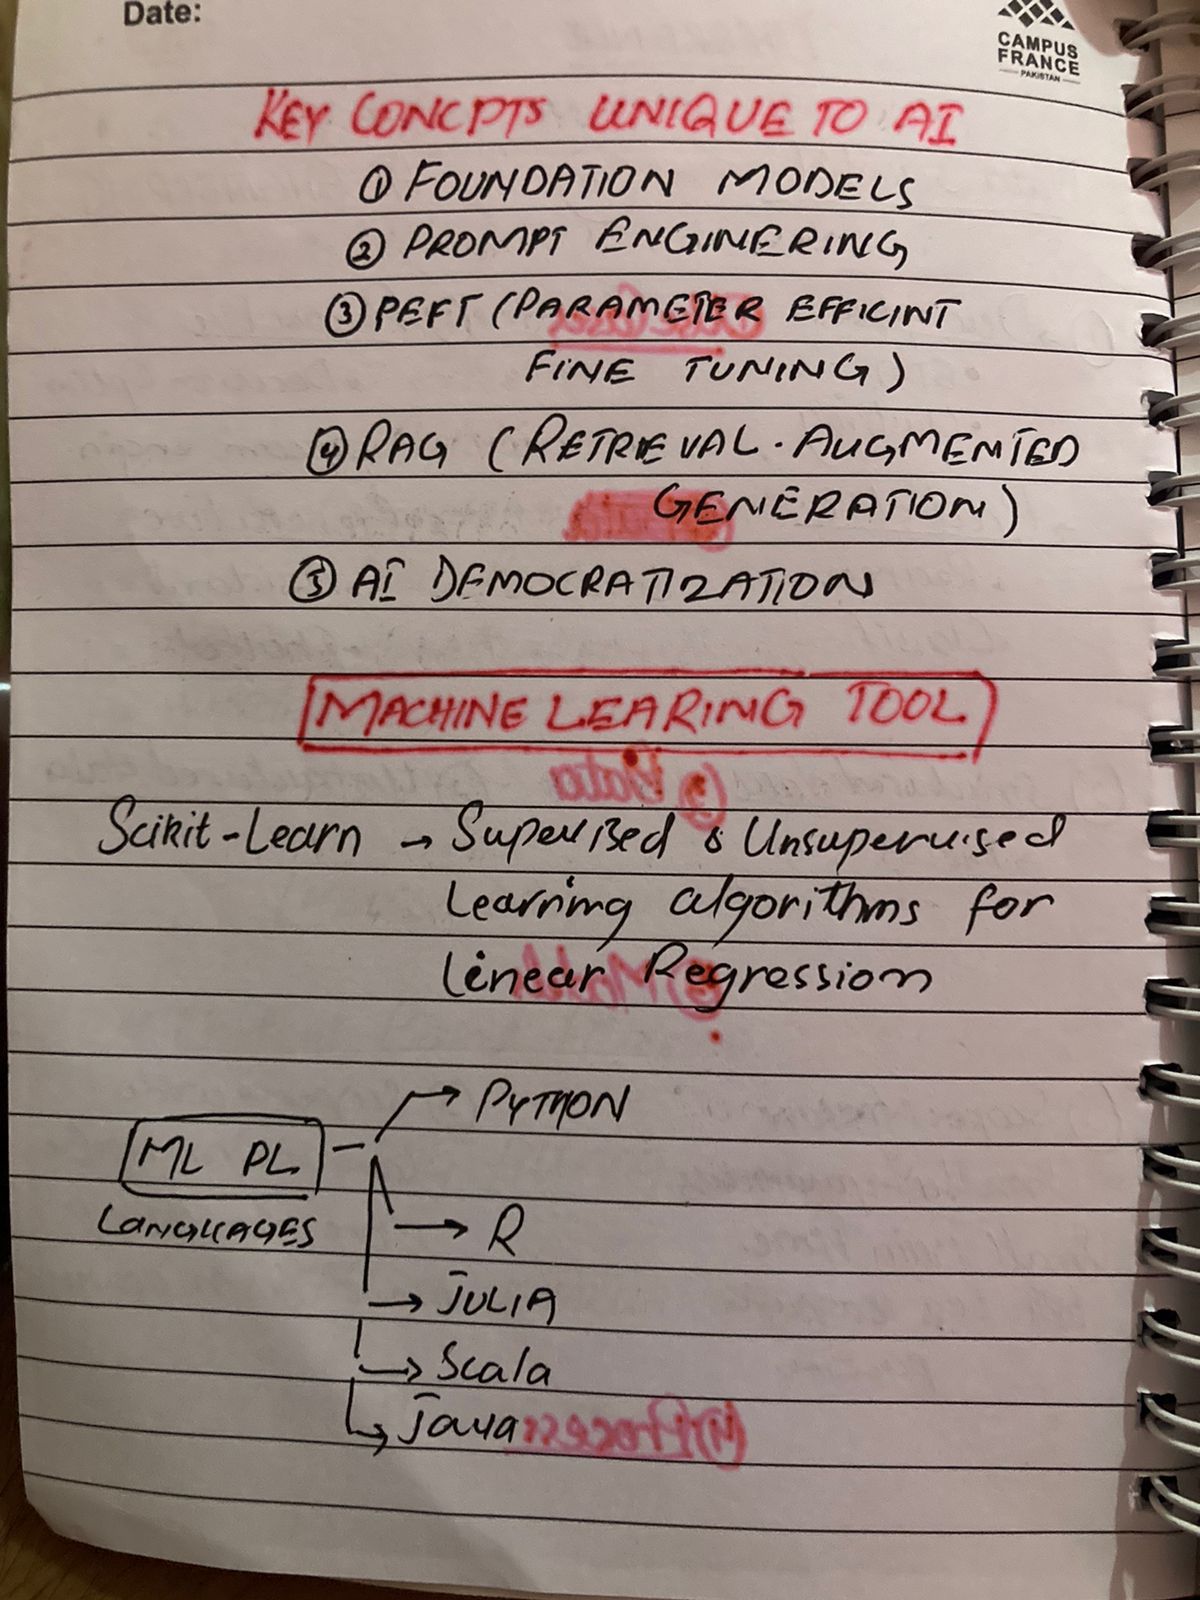 Date:
CAMPUS
FRANCE
PAKISTAN
KEY CONCPTS UNIQUE TO AI
① FOUNDATION MODELS
② PROMPT ENGINERING
③ PEFT (PARAMETER EFFICINT
FINE TUNING)
④ RAG (RETRIEVAL-AUGMENTED
GENERATION)
⑤ AI DEMOCRATIZATION
MACHINE LEARING TOOL
Scikit-Learn → Supervised & Unsupervised
Learning algorithms for
Linear Regression
ML PL → PYTHON
LANGUAGES → R
→ JULIA
→ Scala
→ Java